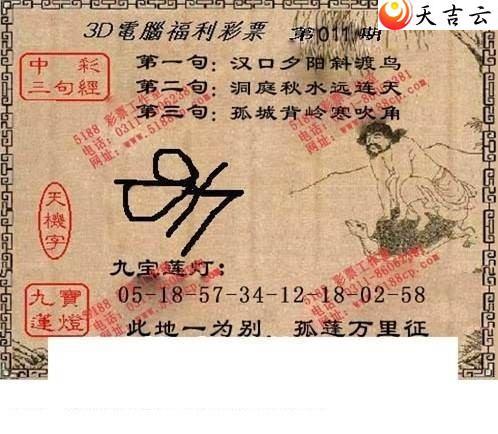 天吉云
3D電腦福利彩票 第011期
中彩
三句經
第一句：汉口夕阳斜渡鸟
第二句：洞庭秋水远连天
第三句：孤城背岭寒吹角
天機字
九宝莲灯：
九寶
蓮燈
05-18-57-34-12-18-02-58
此地一为别，孤莲万里征